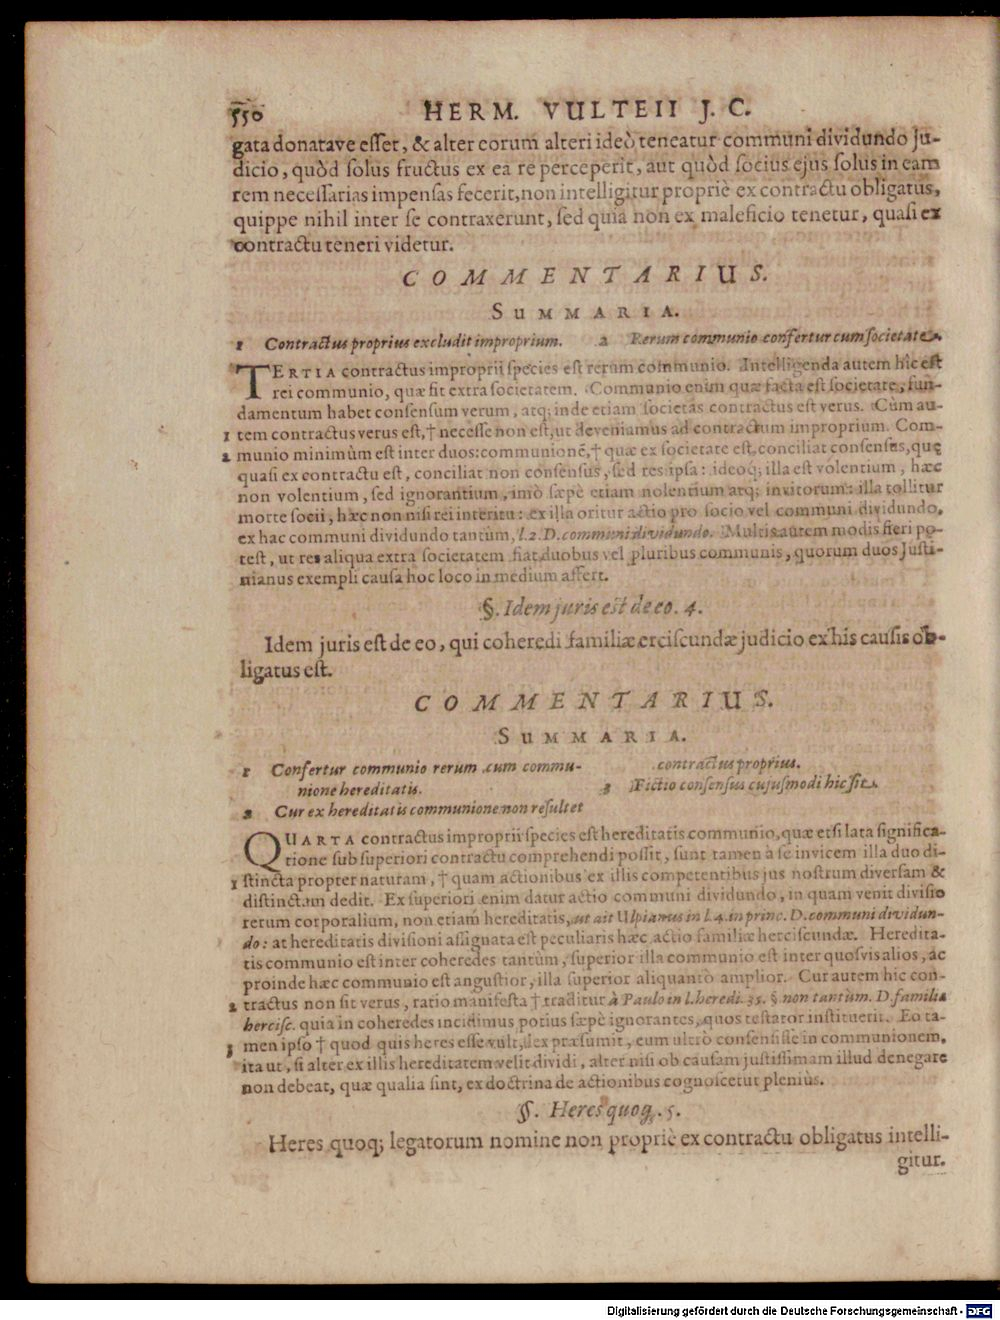 550 HERM. VULTEII J. C.
gata donatave esset, & alter eorum alteri ideò teneatur communi dividundo ju-
dicio, quòd solus fructus ex ea re perceperit, aut quòd socius ejus solus in eam
rem necessarias impensas fecerit, non intelligitur propriè ex contractu obligatus,
quippe nihil inter se contraxerunt, sed quia non ex maleficio tenetur, quasi ex
contractu teneri videtur.
COMMENTARIUS.
SUMMARIA.
1 Contractus proprius excludit improprium. 2 Rerum communio confertur cum societate.
TERTIA contractus improprii species est rerum communio. Intelligenda autem hîc est
rei communio, quæ fit extra societatem. Communio enim quæ facta est societate, fun-
damentum habet consensum verum, atq; inde etiam societas contractus est verus. Cùm au-
1 tem contractus verus est, † necesse non est, ut deveniamus ad contractum improprium. Com-
2 munio minimùm est inter duos: communionẽ, † quæ ex societate est, conciliat consensus, quę
quasi ex contractu est, conciliat non consensus, sed res ipsa: ideoq; illa est volentium, hæc
non volentium, sed ignorantium, imò sæpè etiam nolentium atq; invitorum: illa tollitur
morte socii, hæc non nisi rei interitu: ex illa oritur actio pro socio vel communi dividundo,
ex hac communi dividundo tantùm, l. 2. D. communi dividundo. Multis autem modis fieri po-
test, ut res aliqua extra societatem fiat duobus vel pluribus communis, quorum duos Justi-
nianus exempli causa hoc loco in medium affert.
§. Idem juris est de eo. 4.
Idem juris est de eo, qui coheredi familiæ erciscundæ judicio ex his causis ob-
ligatus est.
COMMENTARIUS.
SUMMARIA.
1 Confertur communio rerum cum commu-
nione hereditatis.
2 Cur ex hereditatis communione non resultet
contractus proprius.
3 Fictio consensus cujusmodi hîc sit.
QUARTA contractus improprii species est hereditatis communio, quæ etsi lata significa-
tione sub superiori contractu comprehendi possit, sunt tamen à se invicem illa duo di-
1 stincta propter naturam, † quam actionibus ex illis competentibus jus nostrum diversam &
distinctam dedit. Ex superiori enim datur actio communi dividundo, in quam venit divisio
rerum corporalium, non etiam hereditatis, ut ait Ulpianus in l. 4. in princ. D. communi dividun-
do: at hereditatis divisioni assignata est peculiaris hæc actio familiæ herciscundæ. Heredita-
tis communio est inter coheredes tantùm, superior illa communio est inter quosvis alios, ac
proinde hæc communio est angustior, illa superior aliquantò amplior. Cur autem hic con-
2 tractus non sit verus, ratio manifesta † traditur à Paulo in l. heredi. 35. § non tantùm. D. familiæ
hercisc. quia in coheredes incidimus potius sæpè ignorantes, quos testator instituerit. Eo ta-
3 men ipso † quod quis heres esse vult, lex præsumit, eum ultrò consensisse in communionem,
ita ut, si alter ex illis hereditatem velit dividi, alter nisi ob causam justissimam illud denegare
non debeat, quæ qualia sint, ex doctrina de actionibus cognoscetur pleniùs.
§. Heres quoq;. 5.
Heres quoq; legatorum nomine non propriè ex contractu obligatus intelli-
gitur.
Digitalisierung gefördert durch die Deutsche Forschungsgemeinschaft - DFG